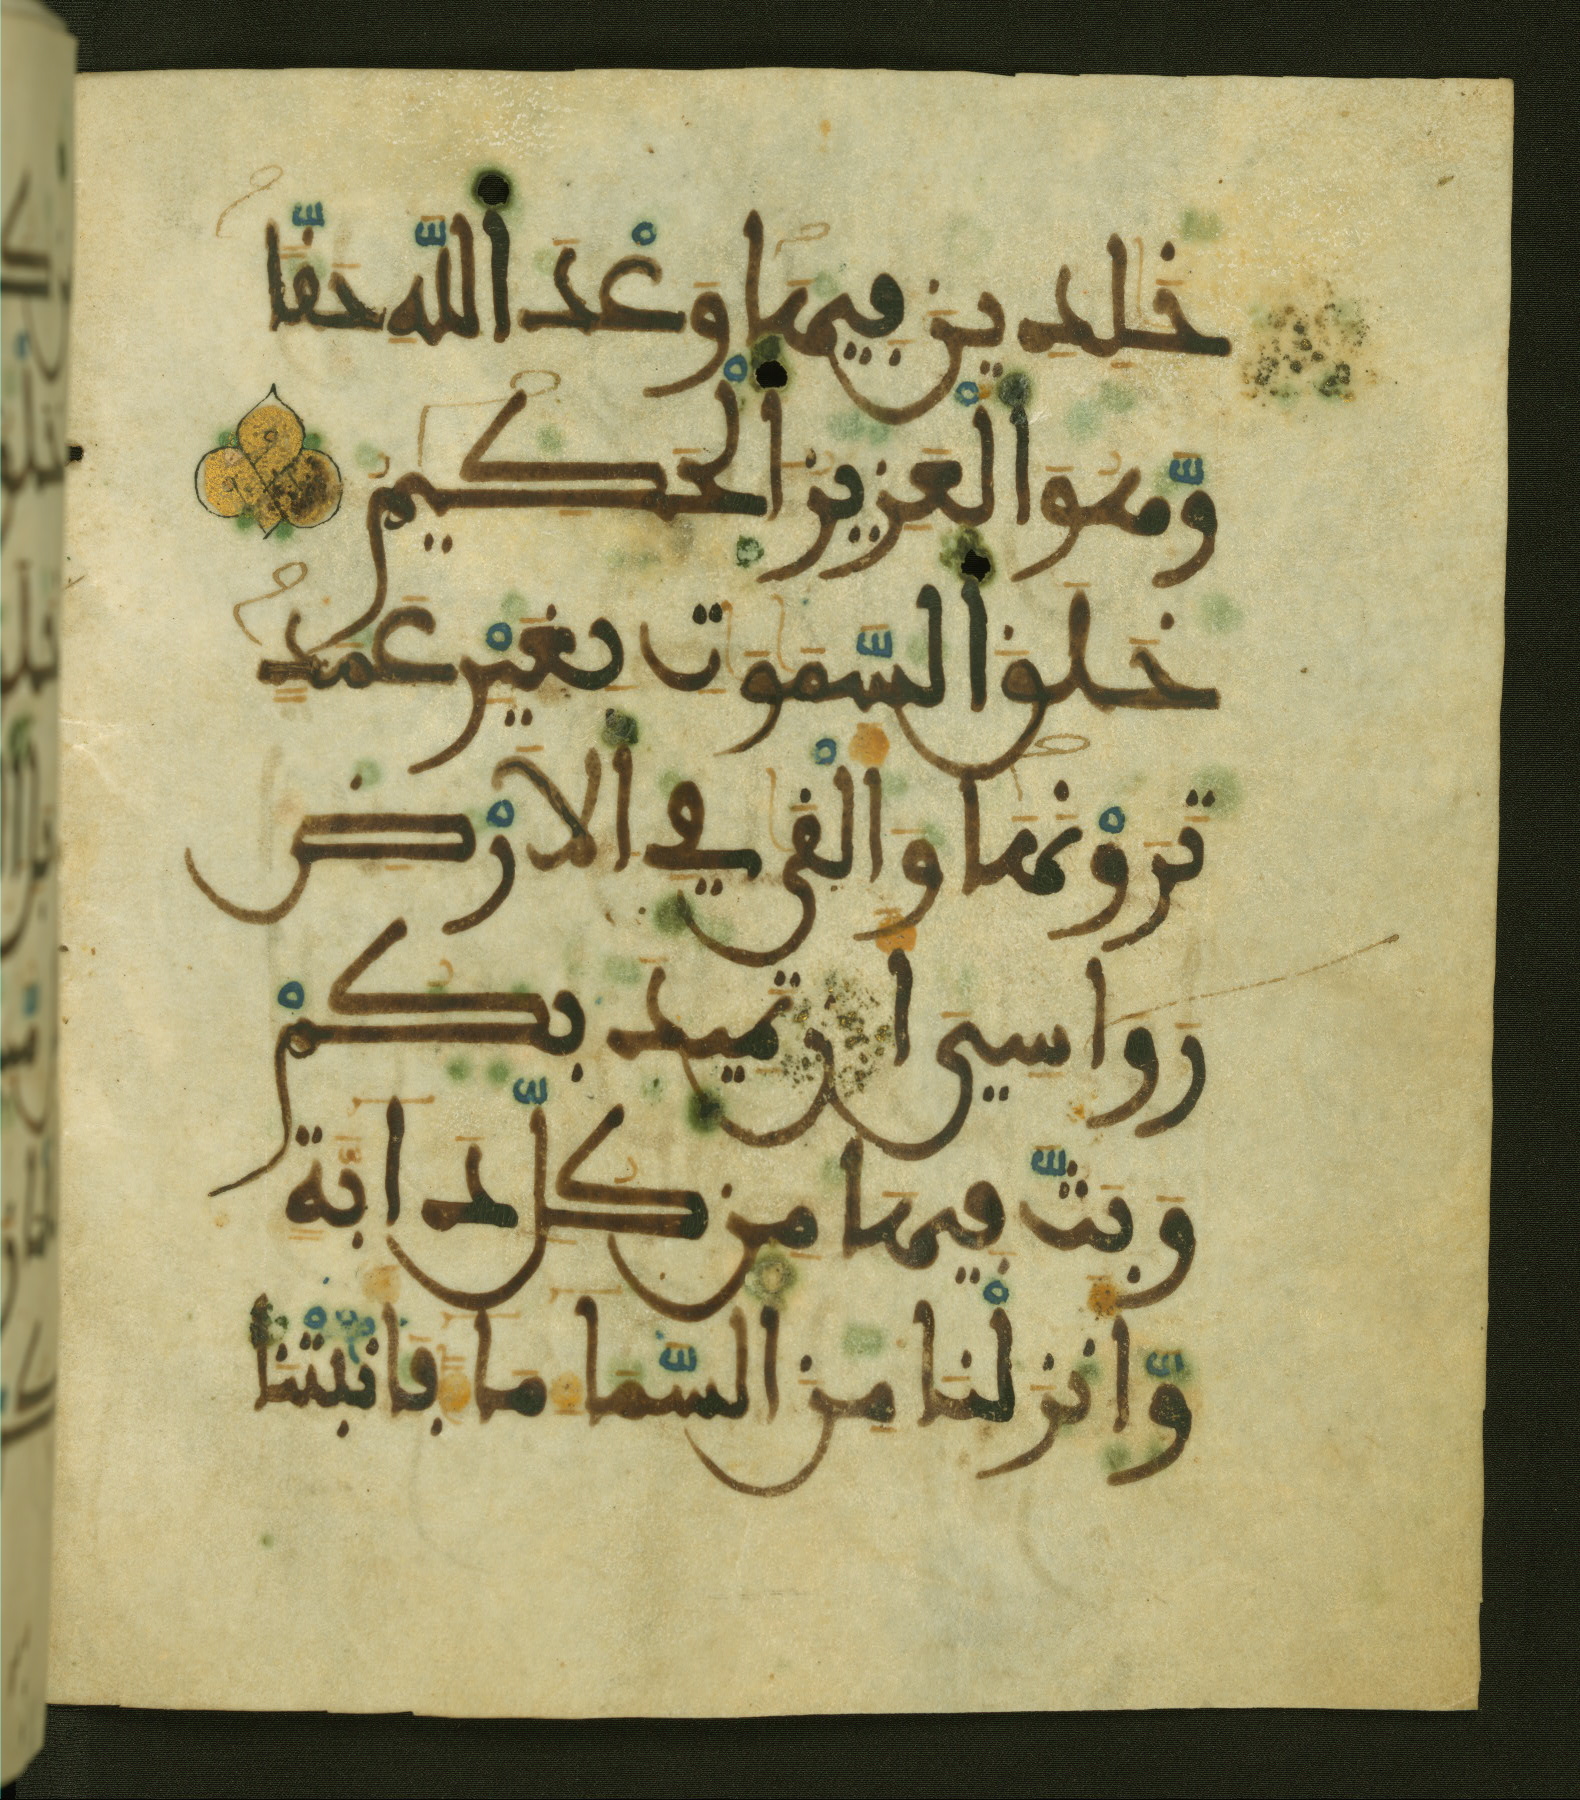 خَٰلِدِينَ فِيهَا وَعْدَ اَللَّهِ حَقّاٗ
وَّهُوَ اَلْعَزِيزُ اُلْحَكِيمُ
خَلَقَ اَلسَّمَٰوَٰتِ بِغَيْرِ عَمَدٖ
تَرَوْنَهَا وَأَلْقَىٰ فِي اِلَارْضِ
رَوَٰسِيَ أَن تَمِيدَ بِكُمْ
وَبَثَّ فِيهَا مِن كُلِّ دَآبَّةٖ
وَّأَنزَلْنَا مِنَ اَلسَّمَآءِ مَآءٗ فَأَنۢبَتْنَا